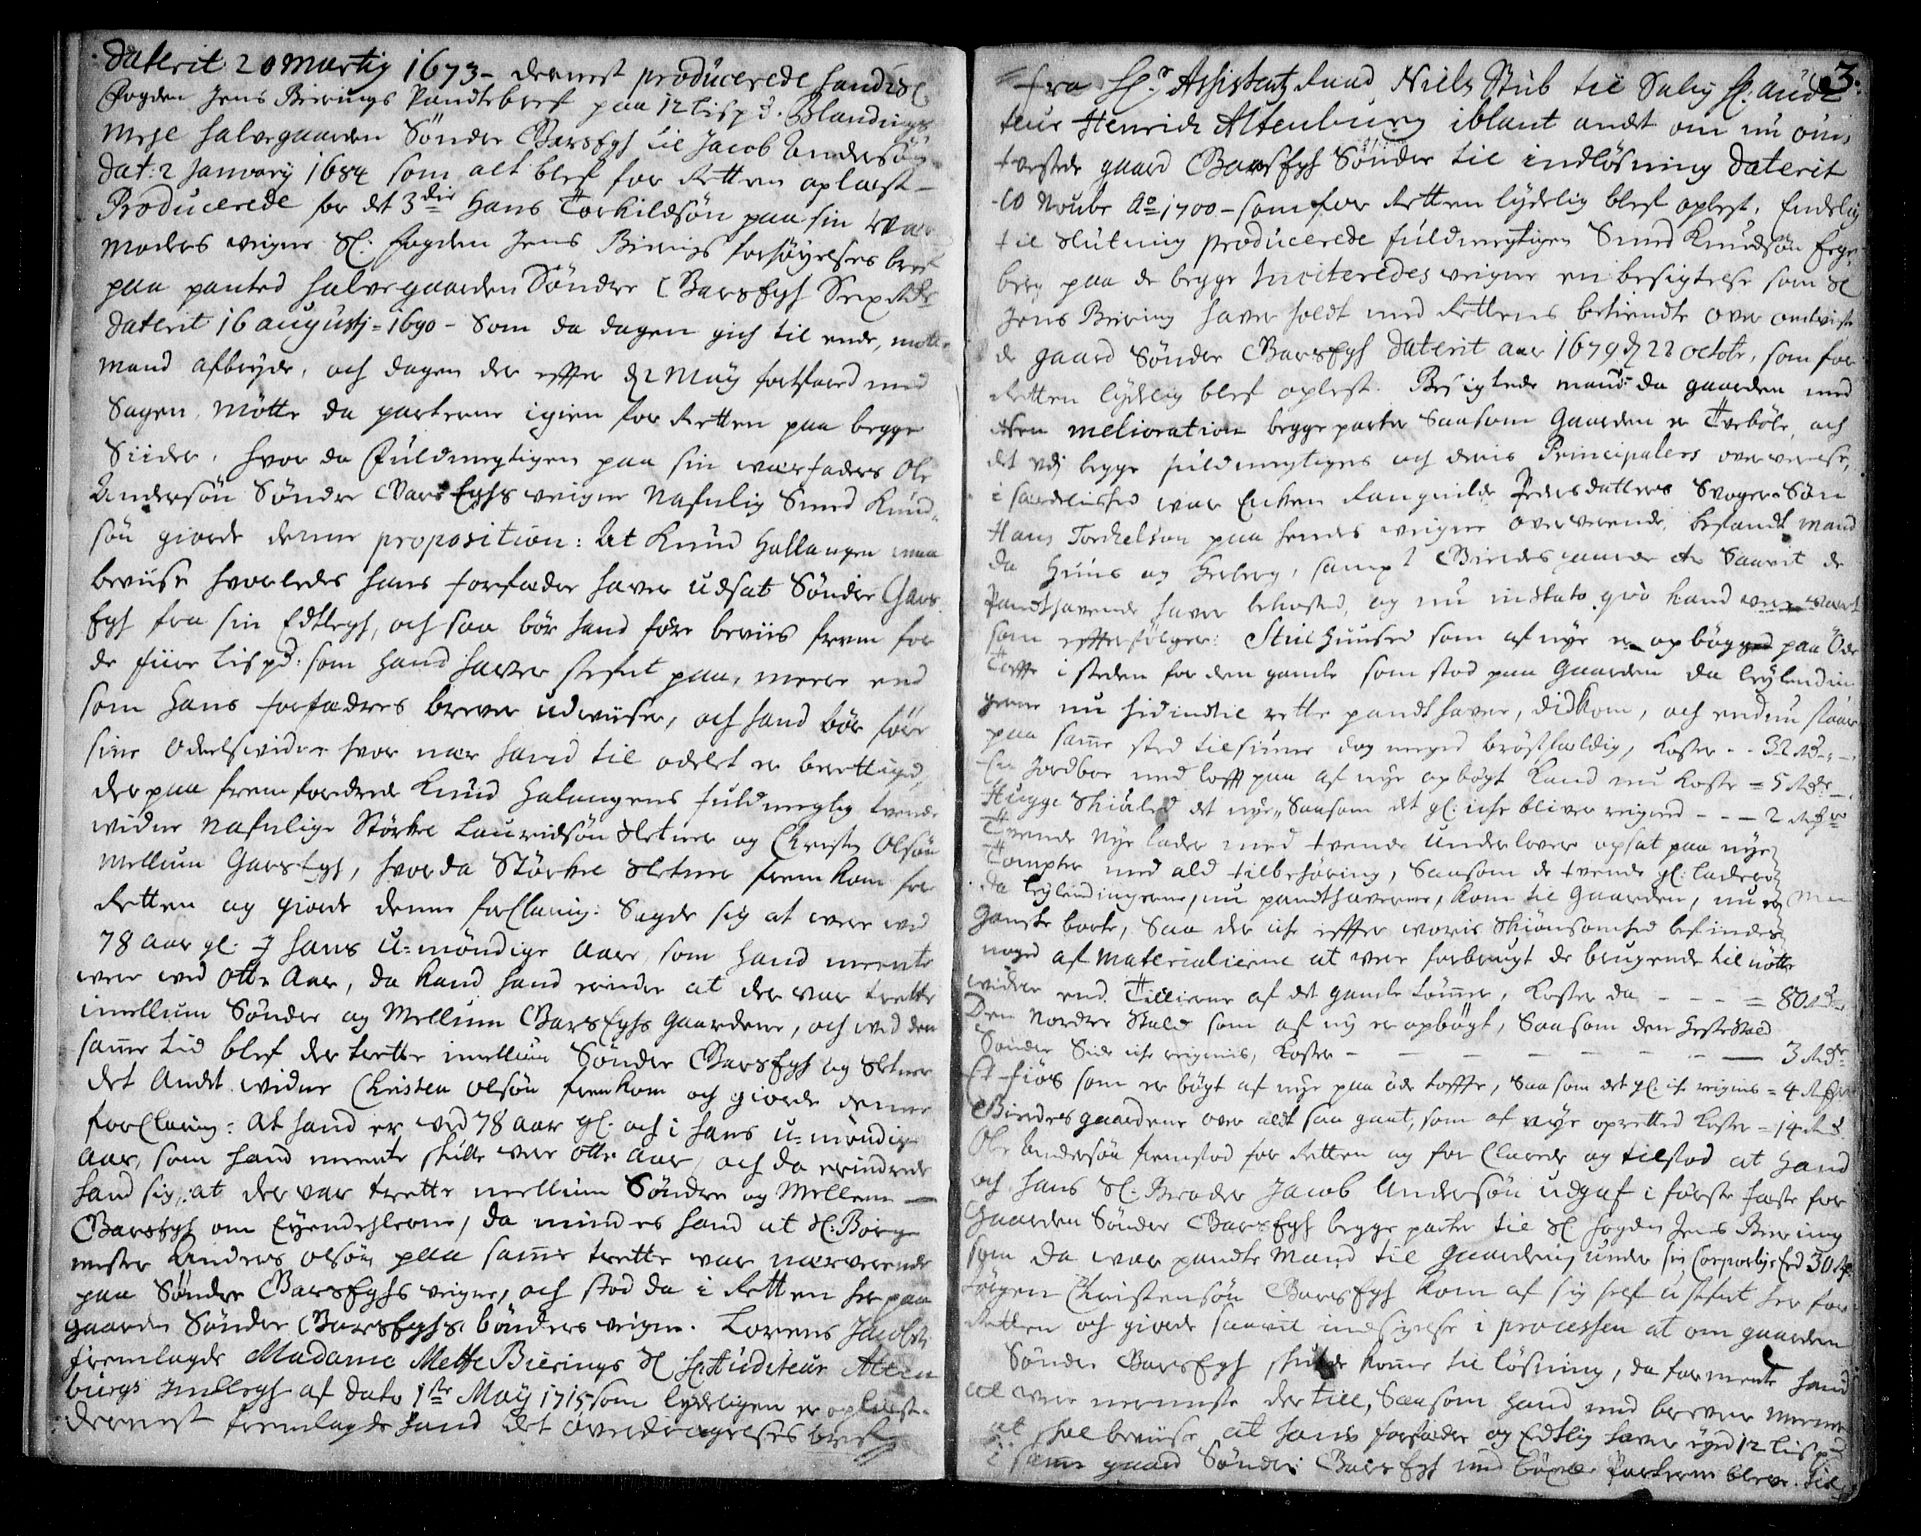 daterit 20 Martij 1673 – dernest producerede hand Sl.
Fogden Jens Bierings Pandtebref paa 12 lispd. Blandings
Mehl halvegaarden Sönder GarsEgh til Jacob Andersön
dat: 2 January 1684 som alt blef for Retten oplæst –
Producerede for det 3die Hans Torkildsön paa sin
moders veigne Sl. fogden Jens Bierings forhöyelses bref
paa panted halvegaarden Söndre GarsEgh Sex Rdr
daterit 16 augustj = 1690 – Som da dagen gich til ende, motte
mand afbryde, och dagen der effter d 2 Maij fortfared med
Sagen, mötte da parterne igien for Retten paa begge
Siider, hvor da Fuldmegtigen paa sin werfaders Ole
Andersön Söndre GarsEghs veigne Nafnlig Simed Knud-
sön giorde denne proposition: At Knud Hallangen maa
beviise hvorledes hans forfædre haver udsat Söndre Gars
Egh fra sin Edtlegh, och saa bör hand före beviis frem for
de fiire lispd: som hand haver stefnt paa, meere end
som Hans forfædres brever udviiser, och hand bör före
sine Odelsvidne hvor nær hand til odelet er berettiget
der paa frem fordrede Knud Halangens fuldmegtig tvende
vidne Nafnlige Störkel Lauridsön Sletner og Christen Olsön
Mellum GarsEgh, hvor da Störkel Sletner frem kom for
Retten og giorde denne forClaring: Sagde sig at vere ved
78 aar gl. J hans u-möndige Aare, som hand meente
vere ved otte Aar, da kand hand erindre at der var trette
imellum Sönder og Mellum GarsEghs gaardene, och ved den
samme tid blef der trette imellum Sönder GarsEgh og Sletner
det Andet vidne Christen Olsön frem kom och giorde denne
forClaring: At hand er ved 78 aar gl. och i hans u-möndige
Aar, som hand meente skulle vere otte Aar, och da erindrede
hand sig, at der var trette mellum Söndre og Mellem –
GarsEgh om Eyendehlerne, da mindes hand at Sl. Borge
mester Anders Olsön paa samme trette var nærverende
paa Söndre GarsEghs veigne, och stod da i Retten her paa
gaarden Sönder GarsEghs bönders veigne. Lorens Jacobsen
fremlagde Madame Mette Bierings Sl. Hr Auditeur Alten
burgs Jndlegh af dato 1ste Maij 1715 som lydeligen er oplæst.
dernest fremlagde hand det overdragelses bref
3.
fra Hr. Assistentzraad Niels Stub til Salig Hr. Audi
teur Henrich Altenburg iblant andet om nu om-
tvestede gaard GarsEgh Sönder til indlösning daterit
10 Novbr Ao 1700 – som for Retten lydelig blef oplest. Endelig
til Slutning producerede fuldmegtigen Simed Knudsön Ege
berg paa de begge Jnciteredes veigne en besigtelse som Sl
Jens Biering haver holdt med Rettens betiendte over omtviste
de gaard Sönder GarsEgh daterit aar 1679 d 22 octobr, som for
Retten lydelig blef oplest. Besigtede mand da gaarden med
dens melioration begge parter Saasom Gaarden er Tvebölt, och
det ved begge fuldmegtiges och deris Principalers oververelse,
i særdelished var Enken Rangnilde Pedersdatters Svoger-Sön
Hans Torchelsön paa hendes veigne oververende, befandt mand
da Huus og Herberg, sampt Gierdesgaarde etc Saavit de
Pandthavende haver bekosted, og nu in statu quo kand
som effterfölger: Stuehuused som af nye er opbögged paa Öde
Toffte i steden for den gamle som stod paa Gaarden da leylendin
gerne nu hidindtil rette pandthaver, didkom, och endnu staar
paa samme sted tilsiune dog meget bröstfældig, koster - - 32 Rdr –
En Jordboe med lofft paa af nye opbögt kand nu koste = 5 Rdr –
Hugge Skiuled det nye, Saasom det gl. iche bliver reigned - - - 2 Rdr
Tvende Nye lader med tvende underlover opsat paa nye
Tompter med ald tilbehöring, Saasom de tvende gl: lader
da leylendingerne, nu pandthaverne, kom til Gaarden, nu er
ganske borte, Saa der iche effter voris Skiönsomhed befindes
noget af materialierne at vere forbrugt de brugende til nötte
videre end Tillierne af det gamle tömmer, koster da - - - = 80 Rdr
Den Nordre Stald som af ny er opbögt, Saasom den Heste Stald
Sönder Side iche reignis, koster – – – – – – – 3 Rdr
Et fiös som er bögt af nye paa öde toffte, Saa som det gl. iche reignis = 4 Rdr
Gierdesgaardene over alt saa gaat, som af nye oprettet koster = 14 Rdr
Ole Andersön fremstod for Retten og forClarede og tilstod at Hand
och hans Sl. Broder Jacob Andersön udgaf i förste fæste for
Gaarden Sönder GarsEgh begge parter til Sl. fogden Jens Biering
som da war pandte Mand til gaarden, under sin Corporlige Eed 30 Rdr
Jörgen Christensön GarsEgh kom af sig self ustefnt her for
Retten och giorde saavit indsigelse i processen at om gaarden
Sönder GarsEgh skulde komme til lösning, da formente hand
at vere nermeste der till, Saasom hand med brever meente
at skal beviise at hans forfædre og Edtlig haver eyed 12 lispd
i samme gaard Sönder GarsEgh med böxel Parterne bleve til